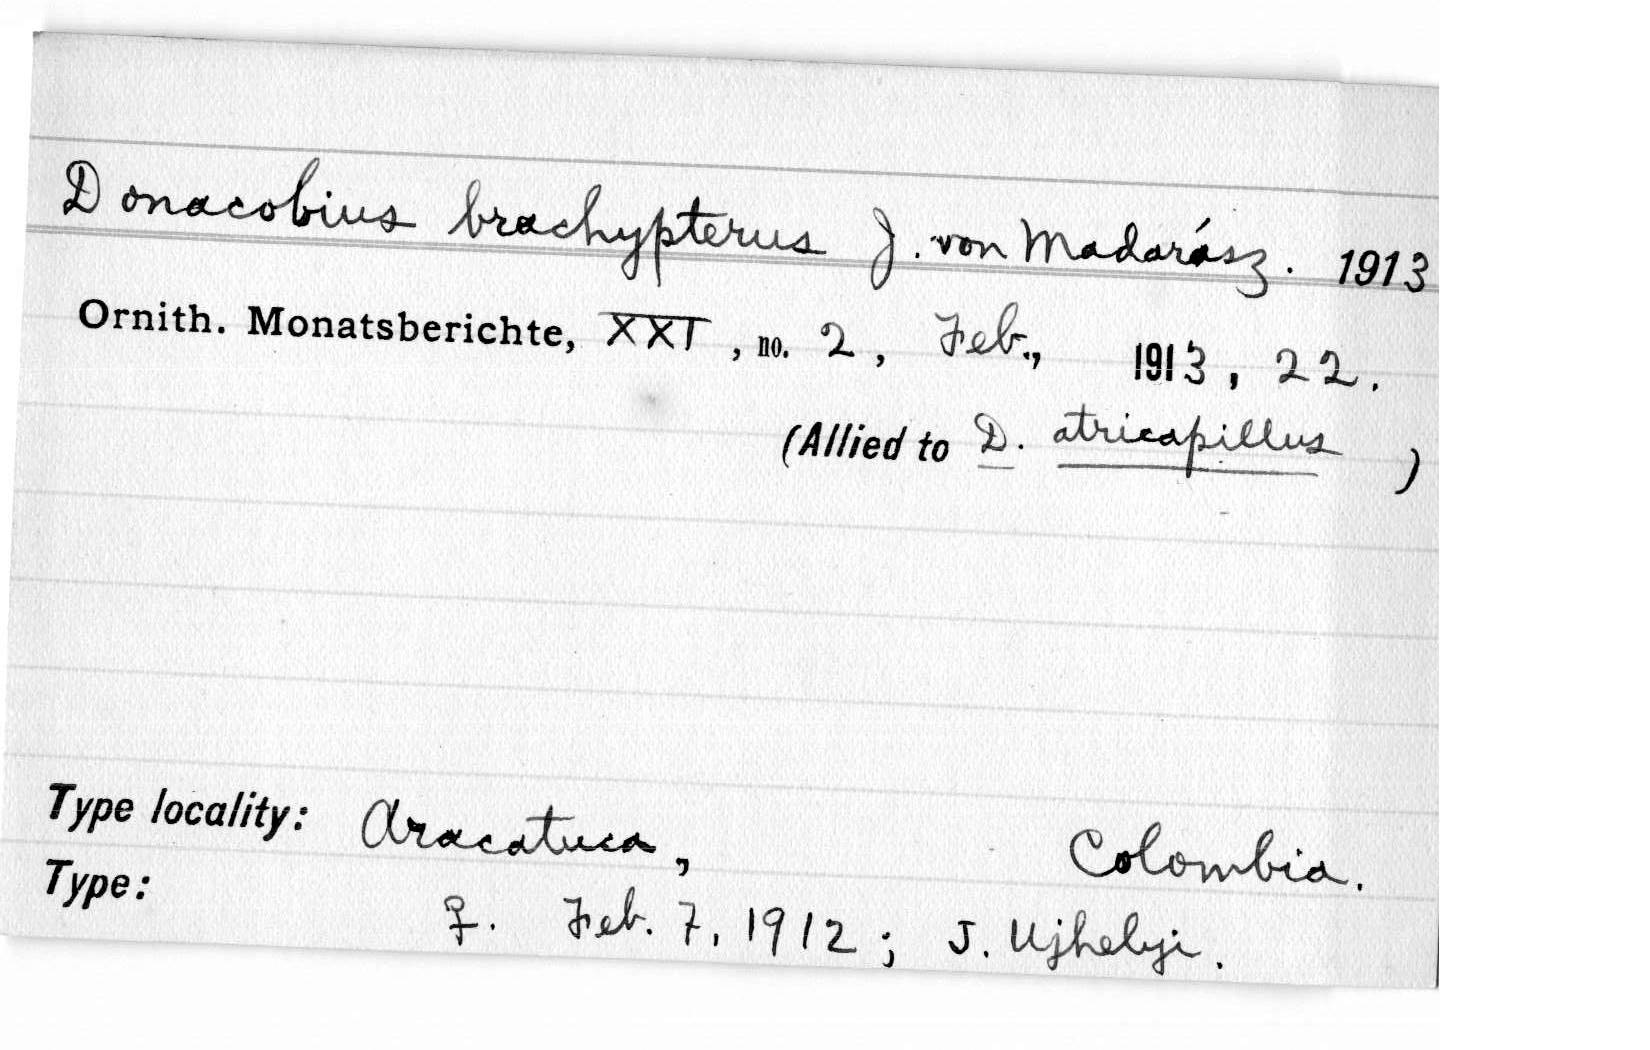 Donacobius brachypterus J. von Madarász. 1913
Ornith. Monatsberichte, XXI, no. 2, Feb., 1913, 22.
(Allied to D. atricapillus )
Type locality: Aracatuca, Colombia.
Type: ♀. Feb. 7, 1912; J. Ujhelyi.